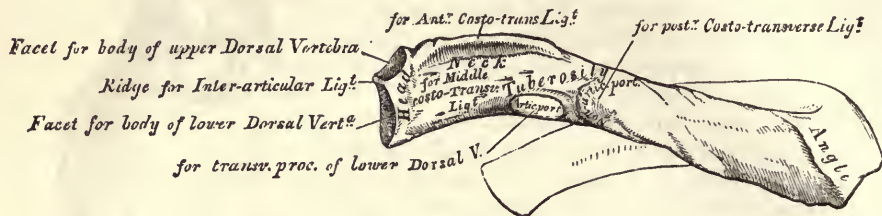 for Ant.r Costo-trans Lig.t
for post.r Costo-transverse Lig.t
Facet for body of upper Dorsal Vertebra
Ridge for Inter-articular Lig.t
Facet for body of lower Dorsal Vert.a
for transv. proc. of lower Dorsal V.
Head
Neck
for Middle
Costo-Transv.
Lig.t
Tuberosity
Artic. port.
port.
Angle